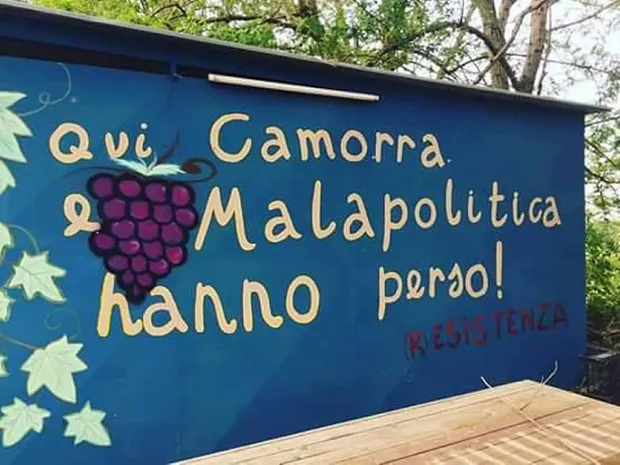 Qui Camorra
e Malapolitica
hanno perso!
(R)ESISTENZA